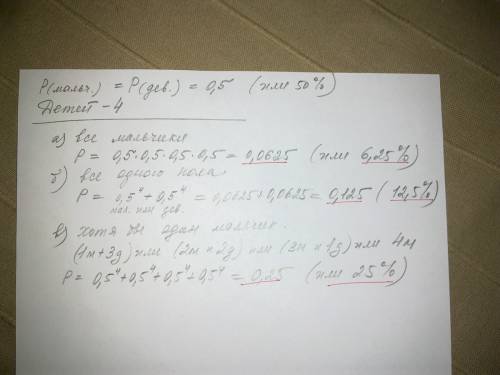 P(мальч.) = P(дев.) = 0,5 (или 50%)
Детей - 4
а) все мальчики
P = 0,5·0,5·0,5·0,5 = 0,0625 (или 6,25%)
б) все одного пола
P = 0,5⁴ + 0,5⁴ = 0,0625 + 0,0625 = 0,125 (12,5%)
мал. или дев.
в) хотя бы один мальчик.
(1м+3д) или (2м+2д) или (3м+1д) или 4м
P = 0,5⁴+0,5⁴+0,5⁴+0,5⁴ = 0,25 (или 25%)